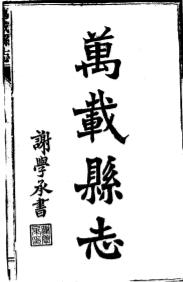 萬載縣志
謝學承書